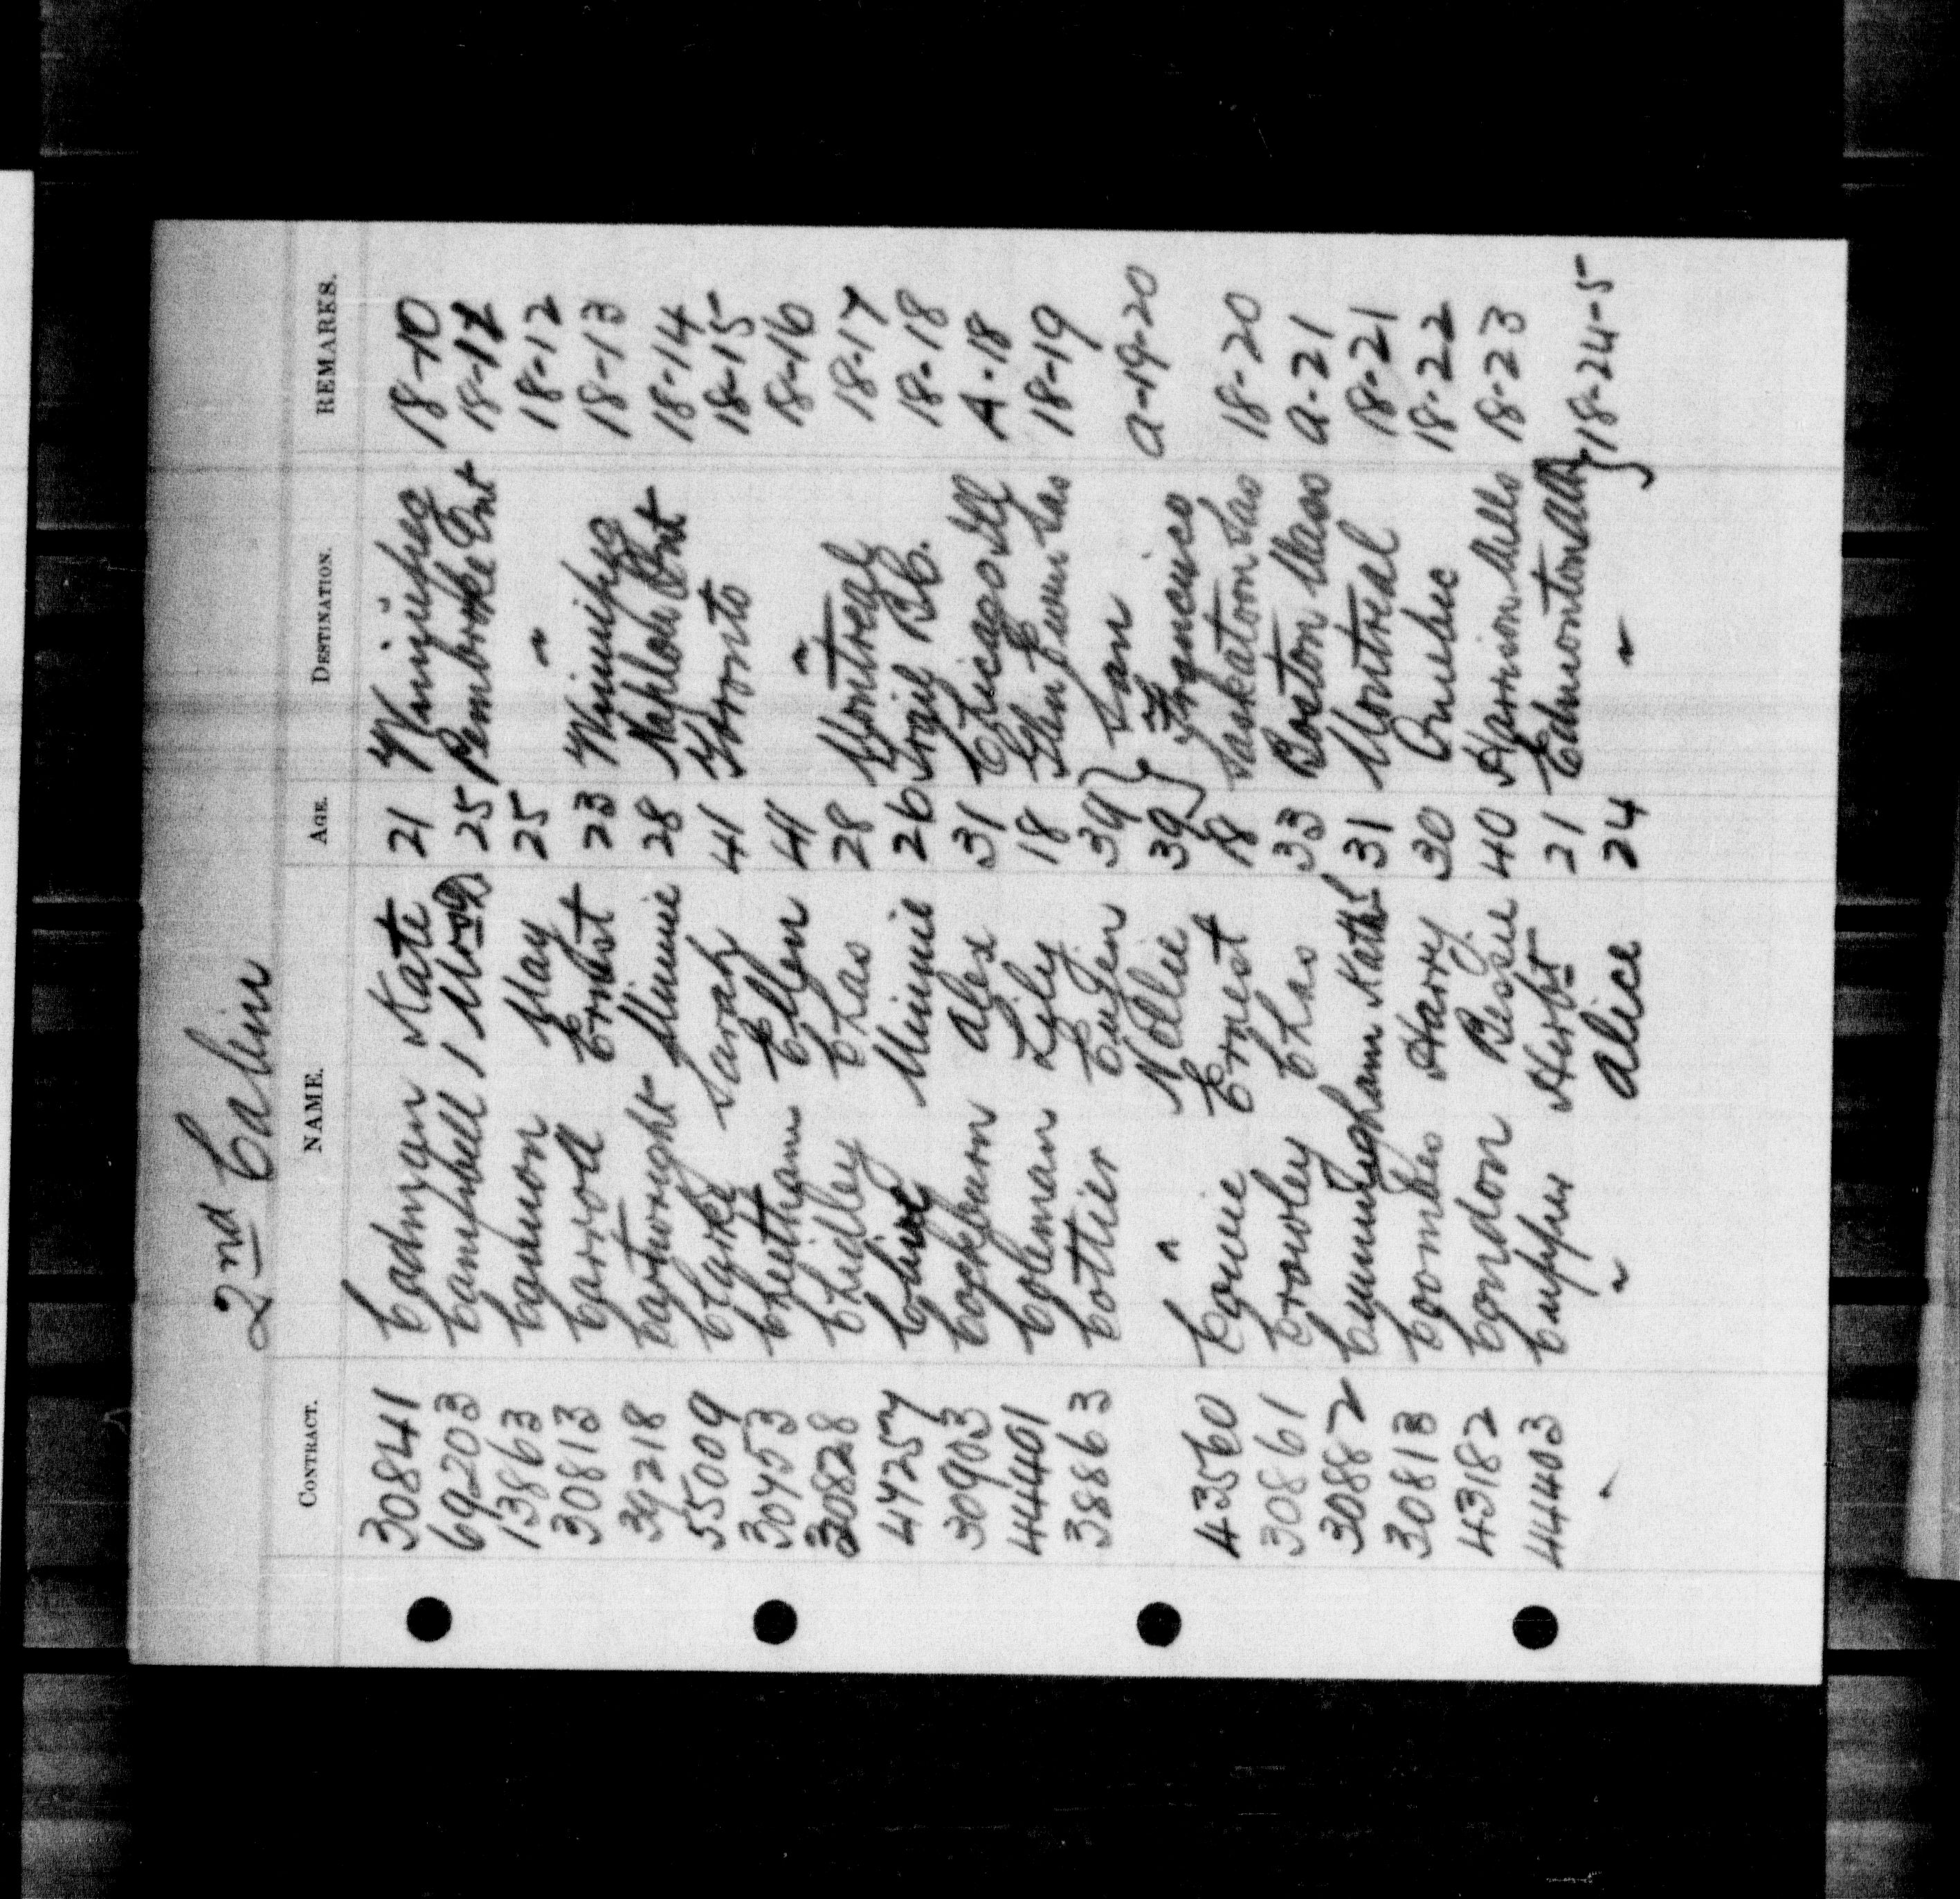 2nd Cabin
CONTRACT. NAME. AGE. DESTINATION. REMARKS.
30841 Cadman Kate 21 Winnipeg 18-10
69203 Campbell 25 Pembroke Ont
13863 Cannon May 25 " 18-12
30813 Carroll Ernest 23 Winnipeg 18-13
39218 Cartwright Minnie 28 Ont 18-14
55009 Clarke Sarah 41 Toronto 18-15
Cheetham Ellen 41 " 18-16
30828 Chidley Chas 28 Montreal 18-17
Minnie 26 Trail B.C. 18-18
30903 Cockburn Alex 31 Chicago Ill A-18
44401 Coleman Lily 18 Glen Ewen Sas 18-19
38863 Cottier 39 } San
" Nellie 39 } Francisco a-19-20
43560 Ernest 18 Saskatoon Sas 18-20
30861 Crowley Chas 33 Boston Mass a-21
30882 Cunningham Kath 31 Montreal 18-21
30813 Coombes Harry 30 Quebec 18-22
43182 Condon Bessie 40 Harrison Mills 18-23
44403 Herbt 21 Edmonton Alta } 18-24-5
" Alice 24 "